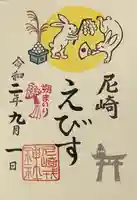 尼崎
えびす
令和二年九月一日
朔まいり
尼崎
神社